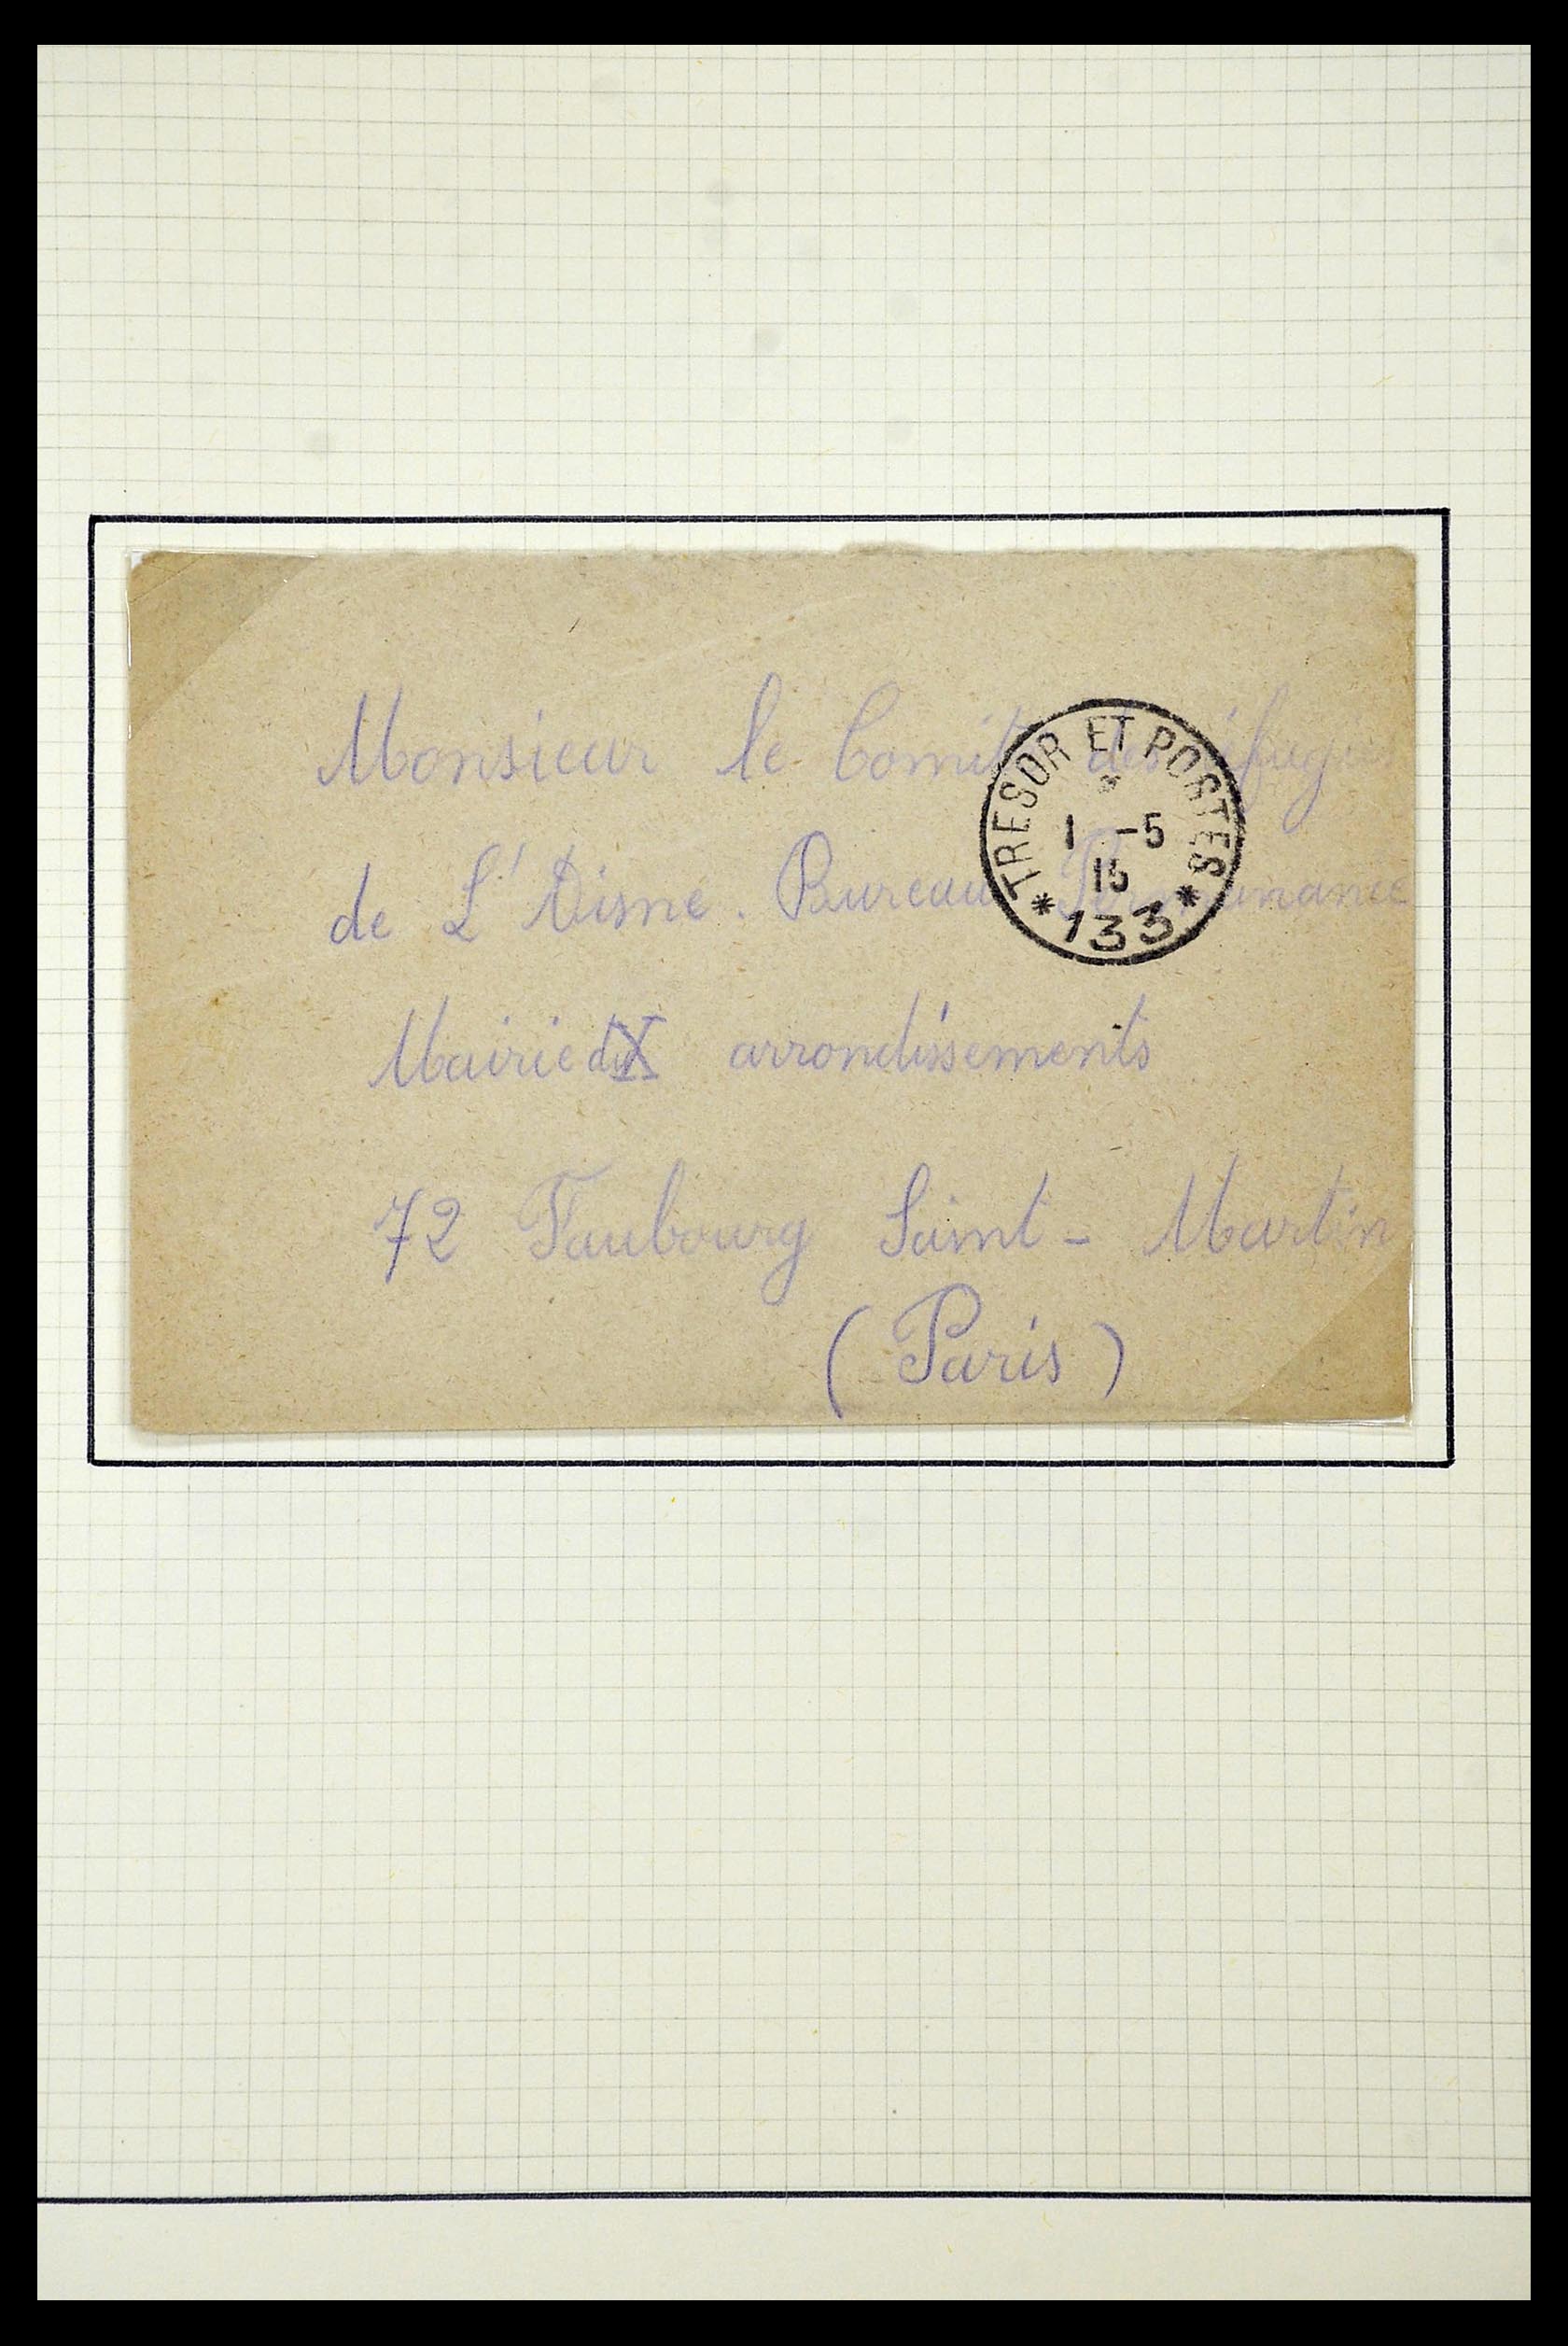 Monsieur le Comité des réfugiés
de L'Aisne. Bureau Permanance
Mairie du X arrondissements
72 Faubourg Saint-Martin
(Paris)
TRESOR ET POSTES
*
1 -5
15
* 133 *